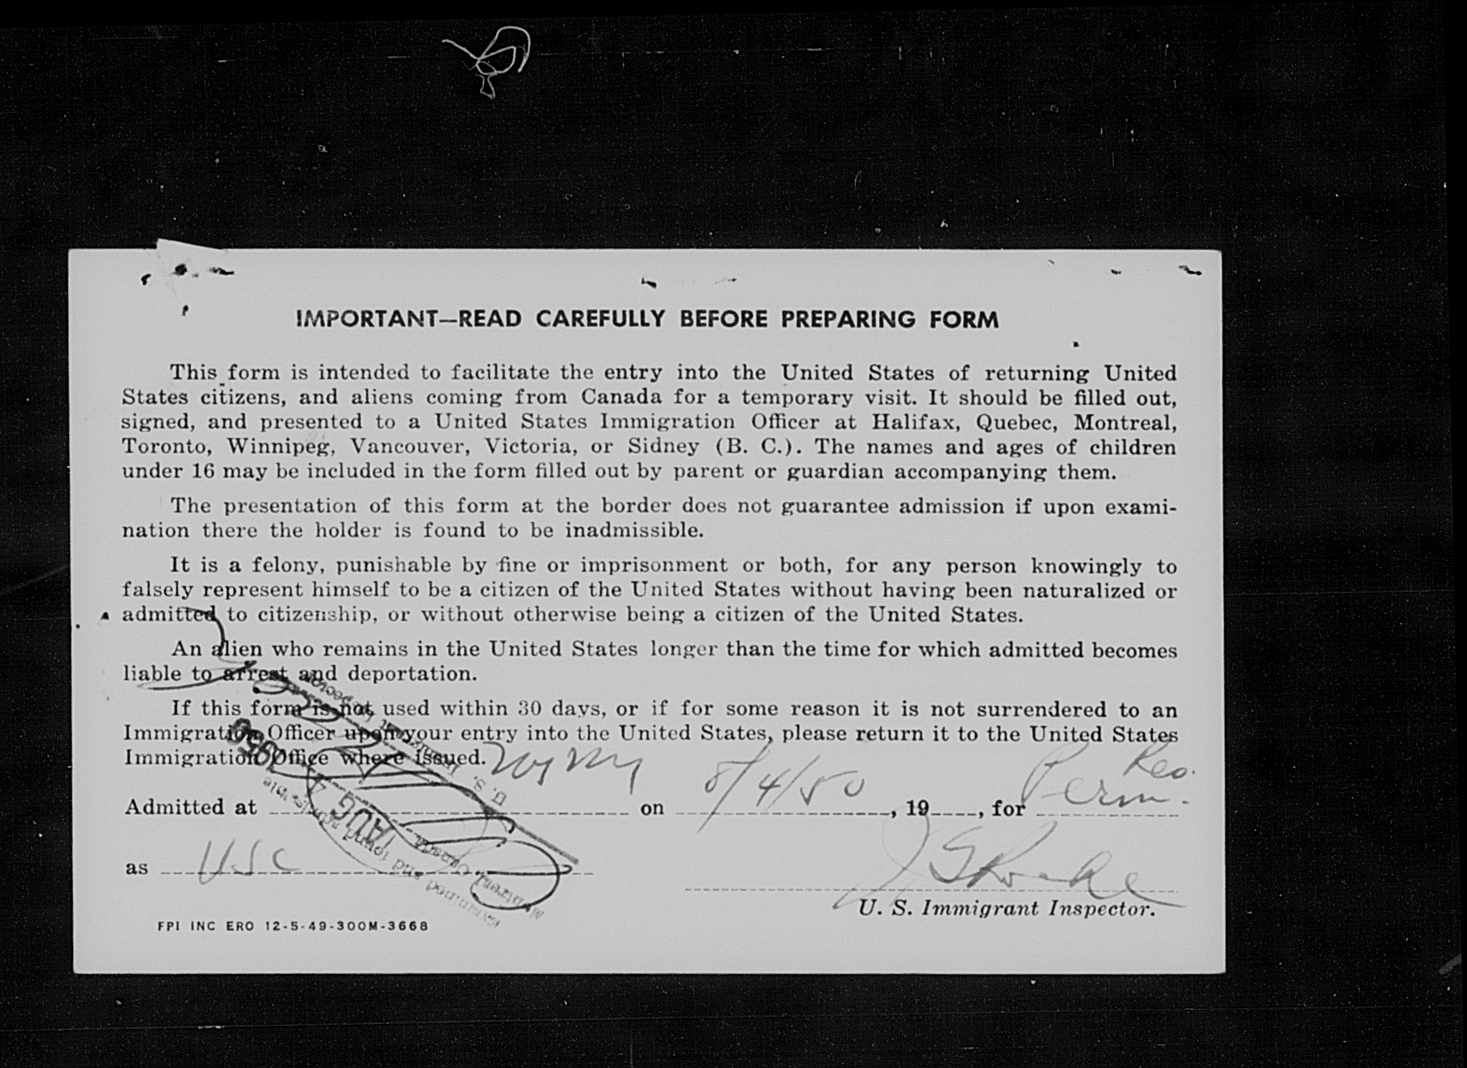 IMPORTANT—READ CAREFULLY BEFORE PREPARING FORM
This form is intended to facilitate the entry into the United States of returning United
States citizens, and aliens coming from Canada for a temporary visit. It should be filled out,
signed, and presented to a United States Immigration Officer at Halifax, Quebec, Montreal,
Toronto, Winnipeg, Vancouver, Victoria, or Sidney (B. C.). The names and ages of children
under 16 may be included in the form filled out by parent or guardian accompanying them.
The presentation of this form at the border does not guarantee admission if upon exami-
nation there the holder is found to be inadmissible.
It is a felony, punishable by fine or imprisonment or both, for any person knowingly to
falsely represent himself to be a citizen of the United States without having been naturalized or
admitted to citizenship, or without otherwise being a citizen of the United States.
An alien who remains in the United States longer than the time for which admitted becomes
liable to arrest and deportation.
If this form is not used within 30 days, or if for some reason it is not surrendered to an
Immigration Officer upon your entry into the United States, please return it to the United States
Immigration Office where issued.
Admitted at on 8/4/50, 19, for Perm. Res.
as USC
U. S. Immigrant Inspector.
Examined and found admissible
Montreal Canada
AUG 4 1950
U. S. Immigrant Inspector
FPI INC ERO 12-5-49-300M-3668